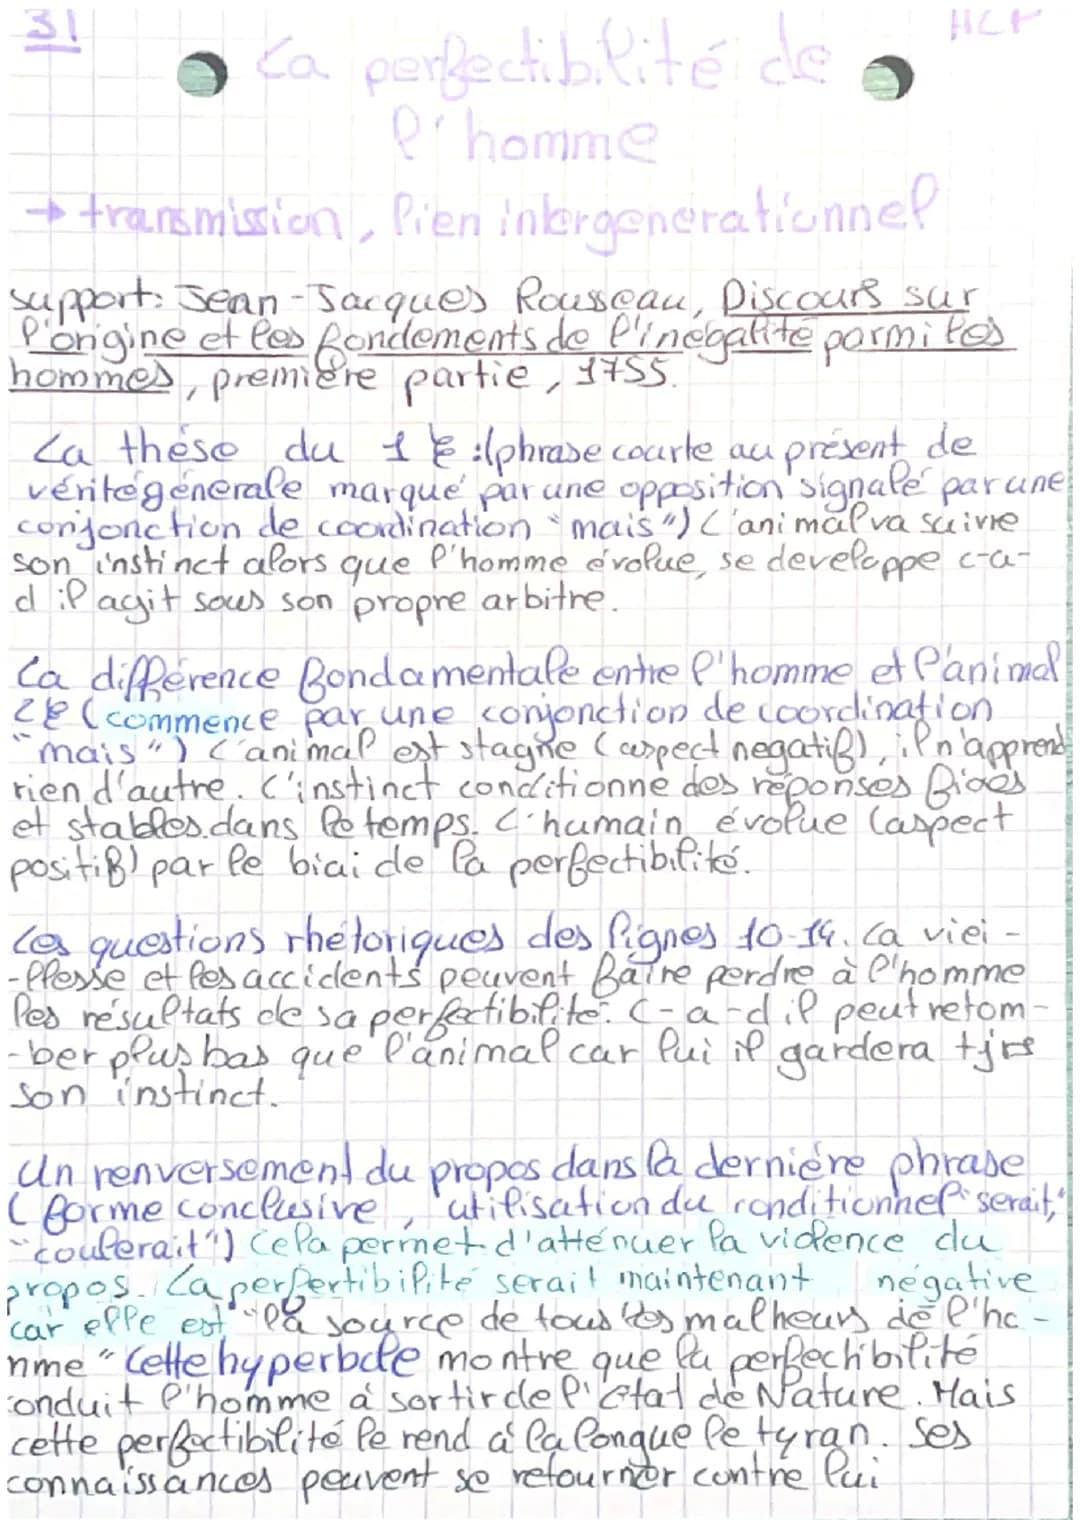 31
HLP
La perfectibilité de
l'homme
→ transmission, lien intergenerationnel
support: Jean-Jacques Rousseau, Discours sur
l'origine et les fondements de l'inégalité parmi les
hommes, première partie, 1755.
La thèse du 1 § :(phrase courte au présent de
vérité générale marqué par une opposition signalé par une
conjonction de coordination "mais") L'animal va suivre
son instinct alors que l'homme évolue, se developpe c-a-
d il agit sous son propre arbitre.
La différence fondamentale entre l'homme et l'animal
2§ (commence par une conjonction de coordination
"mais") L'animal est stagne (aspect negatif), il n'apprend
rien d'autre. L'instinct conditionne des réponses fixes
et stables dans le temps. L'humain évolue (aspect
positif) par le biai de la perfectibilité.
Les questions rhétoriques des lignes 10-14. La viei-
-llesse et les accidents peuvent faire perdre à l'homme
les résultats de sa perfectibilité. C-a-d il peut retom-
-ber plus bas que l'animal car lui il gardera tjrs
son instinct.
Un renversement du propos dans la dernière phrase
(forme conclusive, utilisation du conditionnel "serait,"
"coulerait") Cela permet d'atténuer la violence du
propos. La perfertibilité serait maintenant négative
car elle est "la source de tous les malheurs de l'ho-
mme" Cette hyperbole montre que la perfectibilité
conduit l'homme à sortir de l'état de Nature. Mais
cette perfectibilité le rend à la longue le tyran. Ses
connaissances peuvent se retourner contre lui